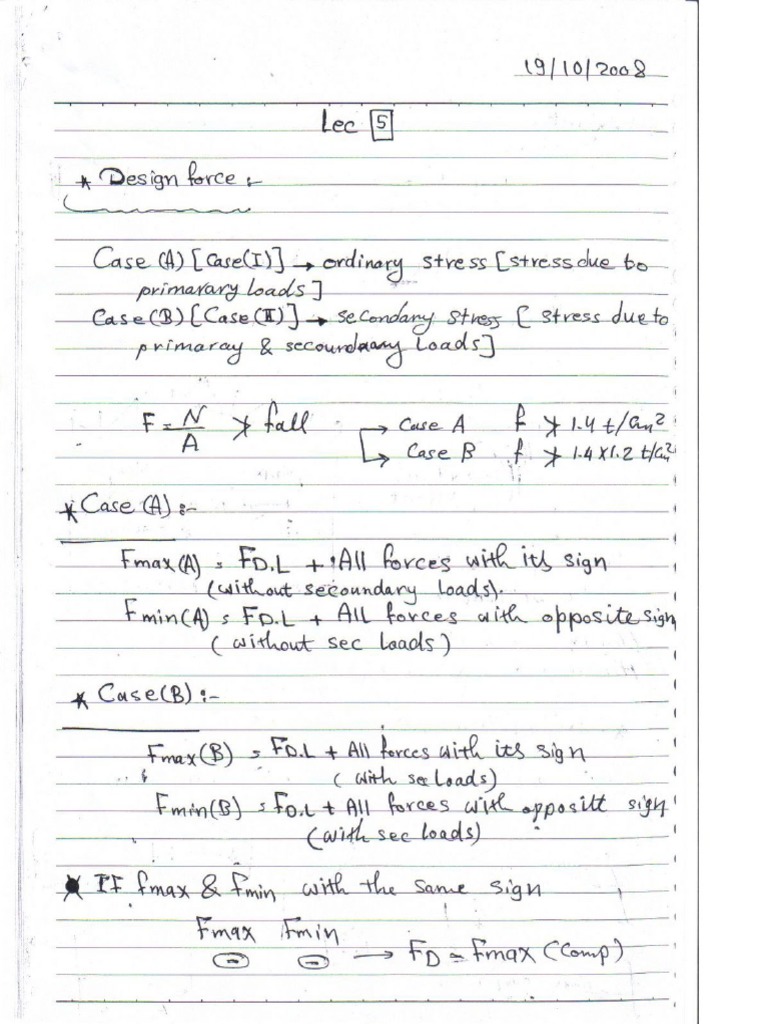 19/10/2008
Lec 5
* Design force :-
Case (A) [Case(I)] → ordinary stress [stress due to
primarary loads]
Case (B) [Case(II)] → secondary stress [ stress due to
primaray & secoundaary Loads]
F = N/A ≯ fall → Case A f ≯ 1.4 t/cm²
→ Case B f ≯ 1.4x1.2 t/cm²
* Case (A) :-
Fmax(A) = FD.L + All forces with its sign
(without secoundary loads).
Fmin(A) = FD.L + All forces with opposite sign
( without sec loads )
* Case(B) :-
Fmax(B) = FD.L + All forces with its sign
( with sec Loads)
Fmin(B) = FD.L + All forces with oppositt sign
(with sec loads)
* If fmax & fmin with the same sign
Fmax Fmin
(-) (-) → FD = Fmax (Comp)